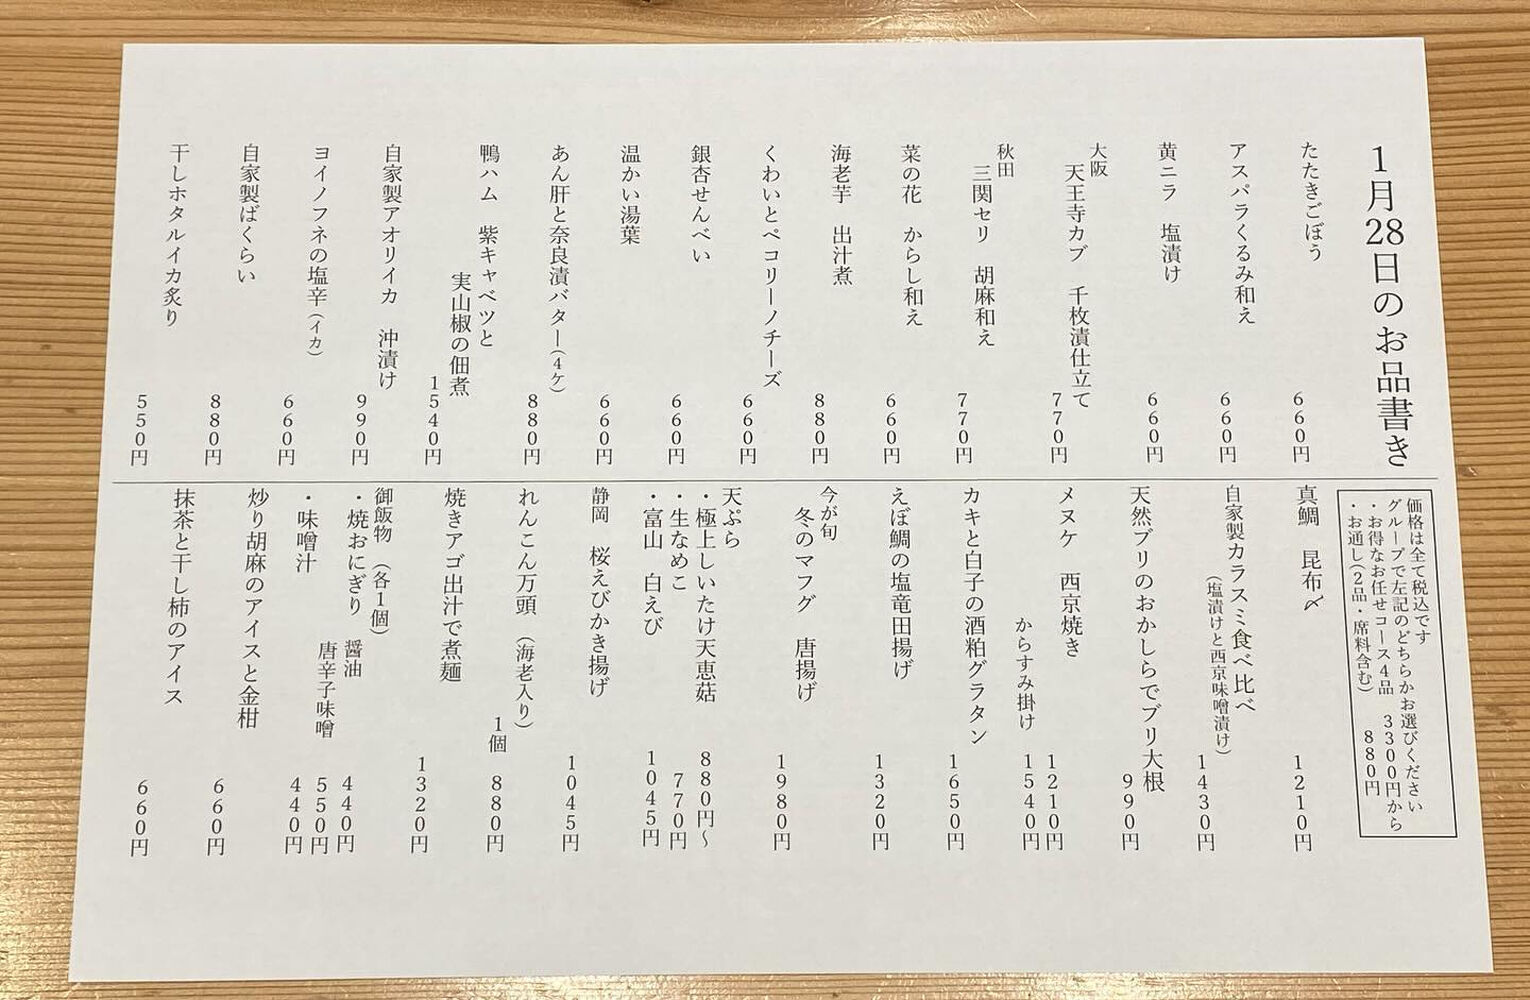 1月28日のお品書き
たたきごぼう 660円
アスパラくるみ和え 660円
黄ニラ 塩漬け 660円
大阪
天王寺カブ 千枚漬仕立て 770円
秋田
三関セリ 胡麻和え 770円
菜の花 からし和え 660円
海老芋 出汁煮 880円
くわいとペコリーノチーズ 660円
銀杏せんべい 660円
温かい湯葉 660円
あん肝と奈良漬バター(4ケ) 880円
鴨ハム 紫キャベツと
実山椒の佃煮 1540円
自家製アオリイカ 沖漬け 990円
ヨイノフネの塩辛(イカ) 660円
自家製ばくらい 880円
干しホタルイカ炙り 550円
価格は全て税込です
グループで左記のどちらかお選びください
・お得なお任せコース4品 3300円から
・お通し(2品・席料含む) 880円
真鯛 昆布〆 1210円
自家製カラスミ食べ比べ
(塩漬けと西京味噌漬け) 1430円
天然ブリのおかしらでブリ大根 990円
メヌケ 西京焼き 1210円
からすみ掛け 1540円
カキと白子の酒粕グラタン 1650円
えぼ鯛の塩竜田揚げ 1320円
今が旬
冬のマフグ 唐揚げ 1980円
天ぷら
・極上しいたけ天恵菇 880円〜
・生なめこ 770円
・富山 白えび 1045円
静岡 桜えびかき揚げ 1045円
れんこん万頭 (海老入り)
1個 880円
焼きアゴ出汁で煮麺 1320円
御飯物 (各1個)
・焼おにぎり 醤油 440円
唐辛子味噌 550円
・味噌汁 440円
炒り胡麻のアイスと金柑 660円
抹茶と干し柿のアイス 660円